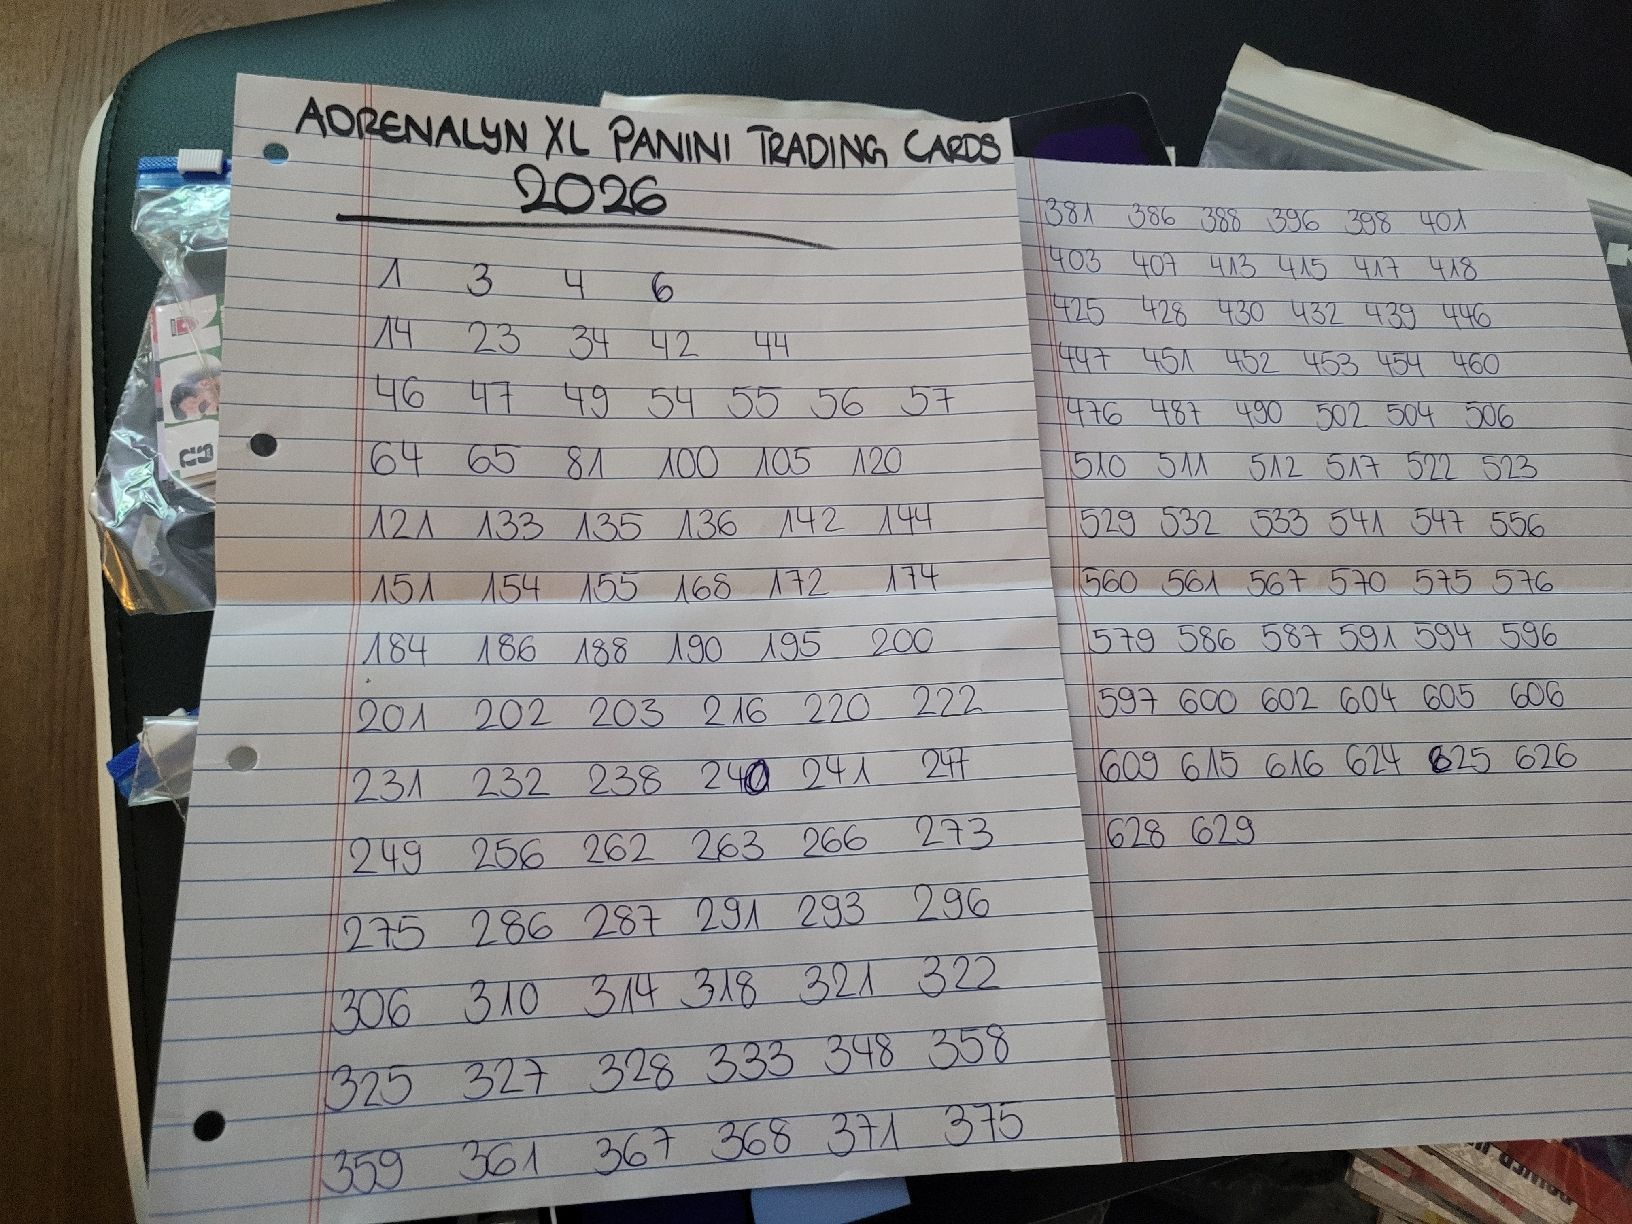 ADRENALYN XL PANINI TRADING CARDS
2026
1 3 4 6
14 23 34 42 44
46 47 49 54 55 56 57
64 65 81 100 105 120
121 133 135 136 142 144
151 154 155 168 172 174
184 186 188 190 195 200
201 202 203 216 220 222
231 232 238 240 241 247
249 256 262 263 266 273
275 286 287 291 293 296
306 310 314 318 321 322
325 327 328 333 348 358
359 361 367 368 371 375
381 386 388 396 398 401
403 407 413 415 417 418
425 428 430 432 439 446
447 451 452 453 454 460
476 487 490 502 504 506
510 511 512 517 522 523
529 532 533 541 547 556
560 561 567 570 575 576
579 586 587 591 594 596
597 600 602 604 605 606
609 615 616 624 625 626
628 629